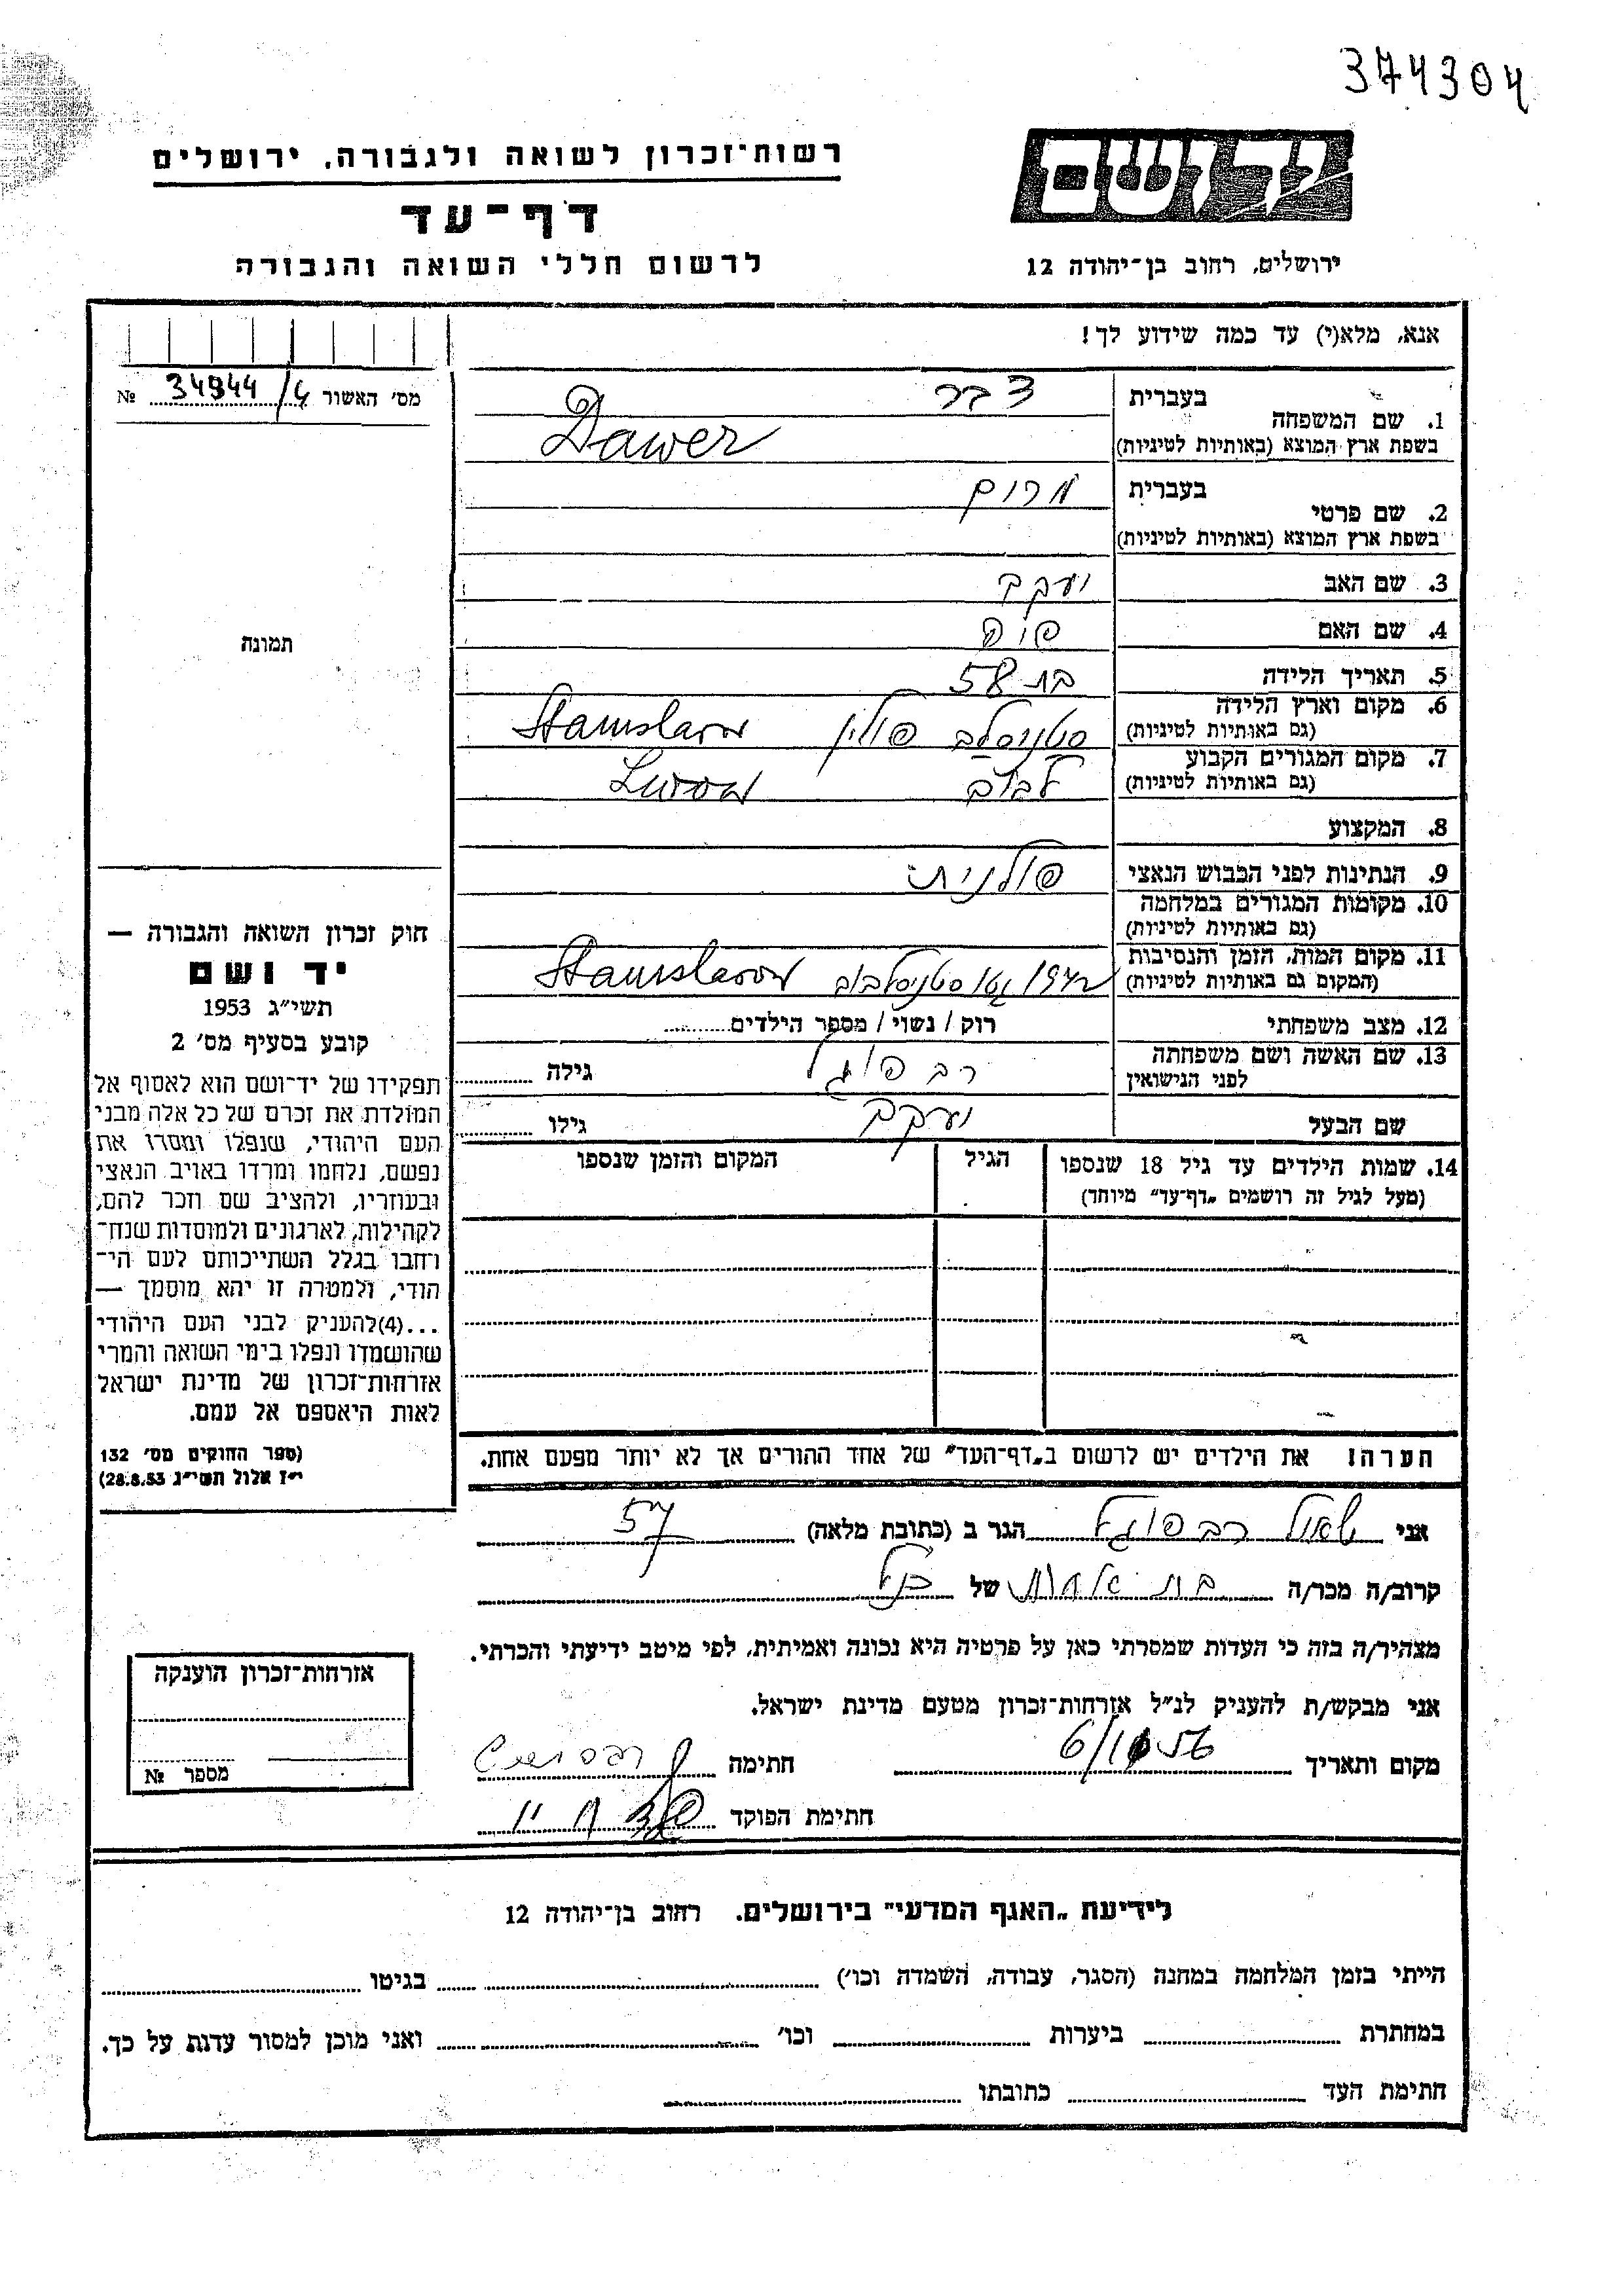 374304
רשות־זכרון לשואה ולגבורה, ירושלים
דף־עד
לרשום חללי השואה והגבורה
יד ושם
ירושלים, רחוב בן־יהודה 12
אנא, מלא(י) עד כמה שידוע לך!
מס׳ האשור 34944/4 №
תמונה
1. שם המשפחה
בעברית
בשפת ארץ המוצא (באותיות לטיניות) Dawer
2. שם פרטי
בעברית מרים
בשפת ארץ המוצא (באותיות לטיניות)
3. שם האב יעקב
4. שם האם
5. תאריך הלידה בת 58
6. מקום וארץ הלידה
(גם באותיות לטיניות) סטניסלב פולין Stanislaw
7. מקום המגורים הקבוע
(גם באותיות לטיניות) לבוב Lwow
8. המקצוע
9. הנתינות לפני הכבוש הנאצי פולנית
10. מקומות המגורים במלחמה
(גם באותיות לטיניות)
11. מקום המות, הזמן והנסיבות
(המקום גם באותיות לטיניות) 1942 סטניסלבוב Stanislawow
12. מצב משפחתי רוק / נשוי / מספר הילדים
13. שם האשה ושם משפחתה
לפני הנישואין גילה
שם הבעל יעקב גילו
14. שמות הילדים עד גיל 18 שנספו הגיל המקום והזמן שנספו
(מעל לגיל זה רושמים „דף־עד״ מיוחד)
חוק זכרון השואה והגבורה —
יד ושם
תשי״ג 1953
קובע בסעיף מס׳ 2
תפקידו של יד־ושם הוא לאסוף אל
המולדת את זכרם של כל אלה מבני
העם היהודי, שנפלו ומסרו את
נפשם, נלחמו ומרדו באויב הנאצי
ובעוזריו, ולהציב שם וזכר להם,
לקהילות, לארגונים ולמוסדות שנח־
רחבו בגלל השתייכותם לעם הי־
הודי, ולמטרה זו יהא מוסמך —
...(4) להעניק לבני העם היהודי
שהושמדו ונפלו בימי השואה והמרי
אזרחות־זכרון של מדינת ישראל
לאות היאספם אל עמם.
(ספר החוקים מס׳ 132
י״ז אלול תשי״ג 28.8.53)
הערה! את הילדים יש לרשום ב„דף־העד״ של אחד ההורים אך לא יותר מפעם אחת.
אני הגר ב (כתובת מלאה) 57
קרוב/ה מכר/ה של
מצהיר/ה בזה כי העדות שמסרתי כאן על פרטיה היא נכונה ואמיתית, לפי מיטב ידיעתי והכרתי.
אני מבקש/ת להעניק לנ״ל אזרחות־זכרון מטעם מדינת ישראל.
מקום ותאריך חתימה
חתימת הפוקד
אזרחות־זכרון הוענקה
מספר №
לידיעת „האגף המדעי״ בירושלים. רחוב בן־יהודה 12
הייתי בזמן המלחמה במחנה (הסגר, עבודה, השמדה וכו׳) בגיטו
במחתרת ביערות וכו׳ ואני מוכן למסור עדות על כך.
חתימת העד כתובתו